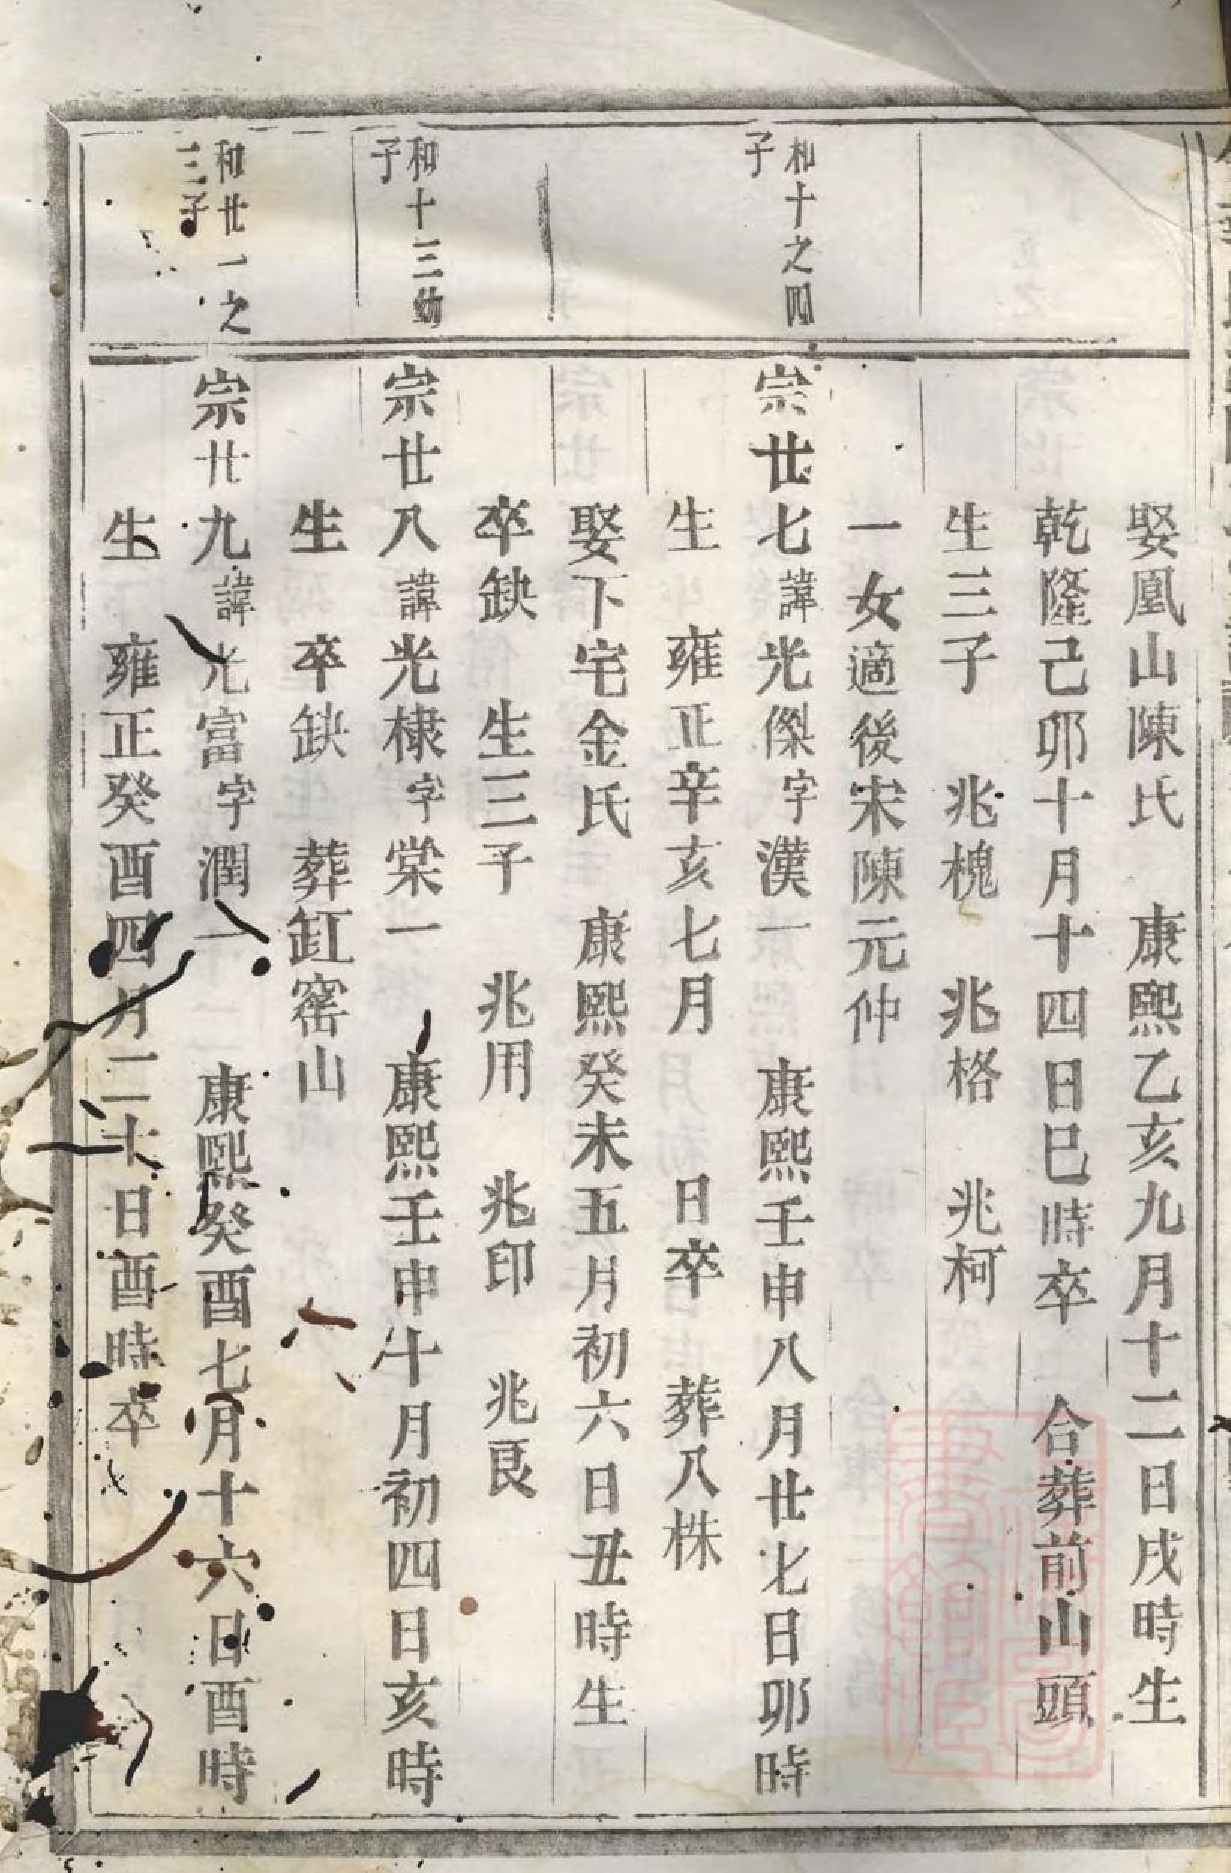 娶凰山陳氏　康熙乙亥九月十二日戌時生
乾隆己卯十月十四日巳時卒　合葬前山頭
生三子　兆槐　兆格　兆柯
一女適後宋陳元仲
和十之四
子
宗廿七諱光傑字漢一　康熙壬申八月廿七日卯時
生　雍正辛亥七月　日卒　葬八株
娶下宅金氏　康熙癸未五月初六日丑時生
卒缺　生三子　兆用　兆印　兆艮
和十三幼
子
宗廿八諱光棣字棠一　康熙壬申十月初四日亥時
生　卒缺　葬缸窰山
和廿一之
三子
宗廿九諱光富字潤一　康熙癸酉七月十六日酉時
生　雍正癸酉四月二十日酉時卒